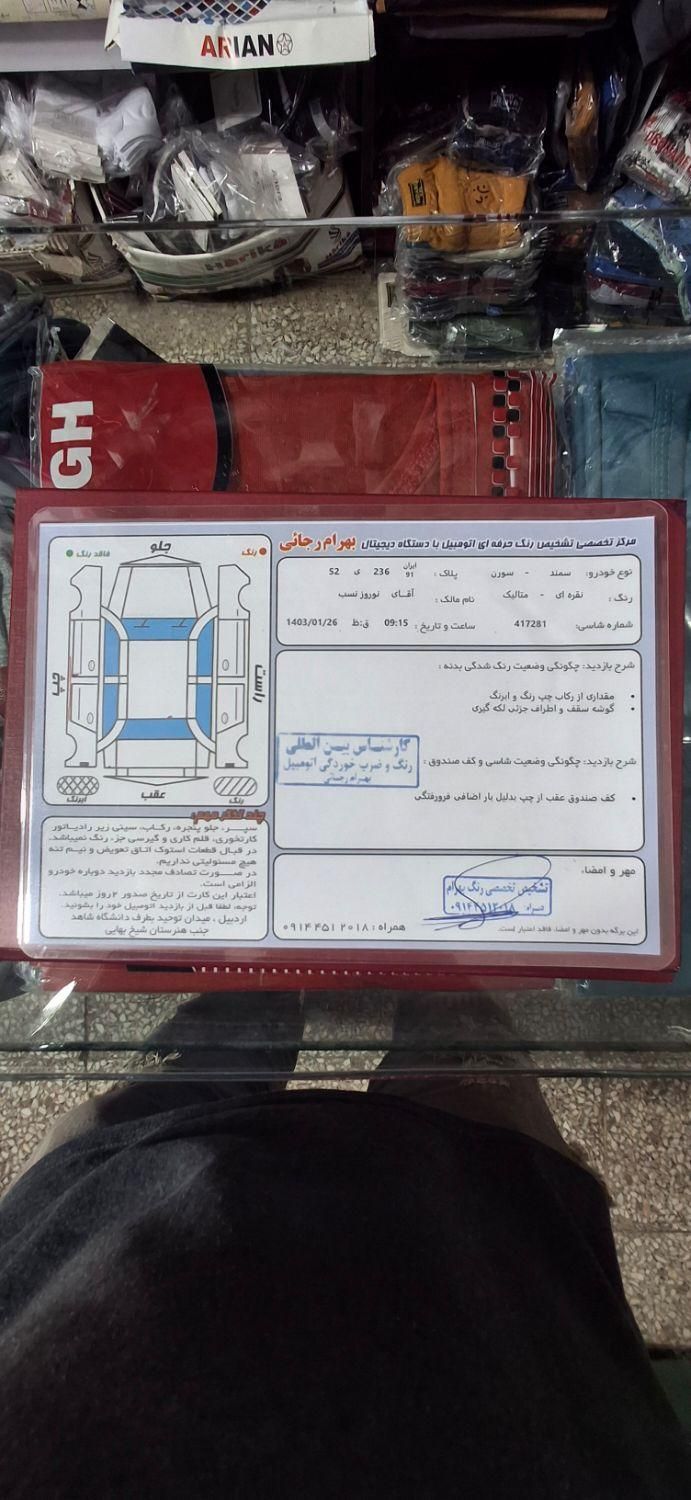 ARIAN
GH
مرکز تخصصی تشخیص رنگ حرفه ای اتومبیل با دستگاه دیجیتال بهرام رجائی
نوع خودرو: سمند - سورن پلاک: ایران 91 236 ی 52
رنگ: نقره ای - متالیک نام مالک: آقای نوروز نسب
شماره شاسی: 417281 ساعت و تاریخ: 09:15 ق:ظ 1403/01/26
شرح بازدید: چگونگی وضعیت رنگ شدگی بدنه:
• مقداری از رکاب چپ رنگ و ابرنگ
• گوشه سقف و اطراف جزئی لکه گیری
کارشناس بین المللی
رنگ و ضرب خوردگی اتومبیل
بهرام رجائی
شرح بازدید: چگونگی وضعیت شاسی و کف صندوق:
• کف صندوق عقب از چپ بدلیل بار اضافی فرورفتگی
مهر و امضاء:
تشخیص تخصصی رنگ بهرام
همراه: ۰۹۱۴۴۵۱۲۰۱۸
همراه: ۰۹۱۴ ۴۵۱ ۲۰۱۸
این برگه بدون مهر و امضاء فاقد اعتبار است.
رنگ
جلو
فاقد رنگ
راست
چپ
رنگ
عقب
ابرنگ
چند تذکر مهم:
سپر، جلو پنجره، رکاب، سینی زیر رادیاتور
کارتخوری، قلم کاری و گیرسی جزء رنگ نمیباشد.
در قبال قطعات استوک اتاق تعویض و نیم تنه
هیچ مسئولیتی نداریم.
در صورت تصادف مجدد بازدید دوباره خودرو
الزامی است.
اعتبار این کارت از تاریخ صدور ۲ روز میباشد.
توجه، لطفا قبل از بازدید اتومبیل خود را بشوئید.
اردبیل، میدان توحید بطرف دانشگاه شاهد
جنب هنرستان شیخ بهایی